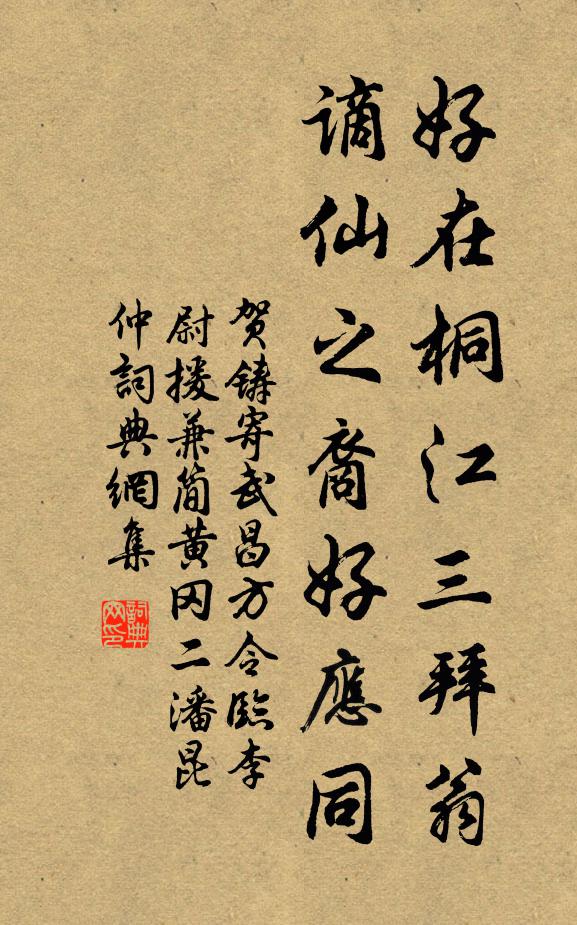 好在桐江三拜翁
謫仙之裔好應同
贺鑄寄武昌方令臨李
尉援兼简黄冈二潘昆
仲詞典網集
詞典网印